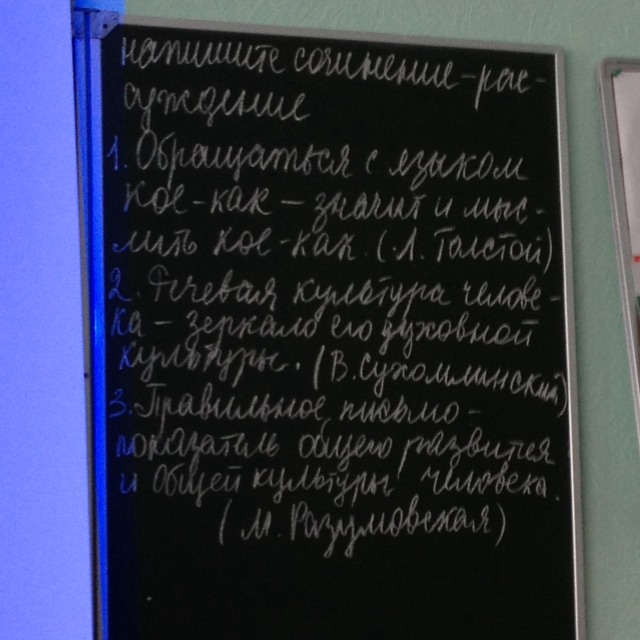 напишите сочинение-рас-
суждение
1. Обращаться с языком
кое-как – значит и мыс-
лить кое-как. (Л. Толстой)
2. Речевая культура челове-
ка – зеркало его духовной
культуры. (В. Сухомлинский)
3. Правильное письмо –
показатель общего развития
и общей культуры человека.
(М. Разумовская)